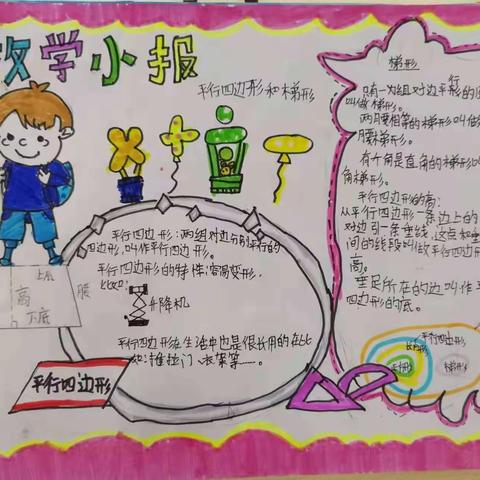 数学小报
平行四边形和梯形
平行四边形：两组对边分别平行的
四边形，叫作平行四边形。
平行四边形的特性：容易变形，
比如：
升降机
平行四边形在生活中也是很常用的在比
如：推拉门、衣架等……。
上底
高
腰
下底
平行四边形
梯形
只有一为组对边平行的
叫做梯形。
两腰相等的梯形叫做
腰梯形。
有个角是直角的梯形叫
角梯形。
平行四边形的高：
从平行四边形一条边上的
对边引一条垂线，这点和垂
间的线段叫做平行四边形
高。
垂足所在的边叫作平
四边形的底。
平行四边形
长方形
正方形
梯形